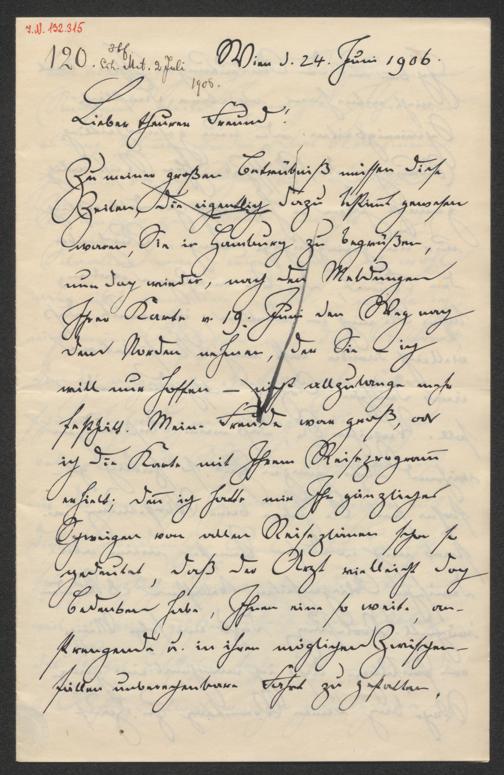 I.N. 132.315
120. Wien d. 24. Juni 1906.
2 Juli
1906.
Lieber theurer Freund!
Zu meiner großen Betrübniß müssen diese
Zeilen, die eigentlich dazu bestimmt gewesen
waren, Sie in Hamburg zu begrüßen,
nun doch wieder, nach den Meldungen
Ihrer Karte v. 19. Juni den Weg nach
dem Norden nehmen, der Sie – ich
will nur hoffen – nicht allzulange mehr
festhält. Meine Freude war groß, als
ich die Karte mit Ihrem Reiseprogramm
erhielt; denn ich hatte mir Ihr gänzliches
Schweigen von allen Reiseplänen schon so
gedeutet, daß der Arzt vielleicht doch
Bedenken habe, Ihnen eine so weite, an-
strengende u. in ihren möglichen Zwischen-
fällen unberechenbare Fahrt zu gestatten.